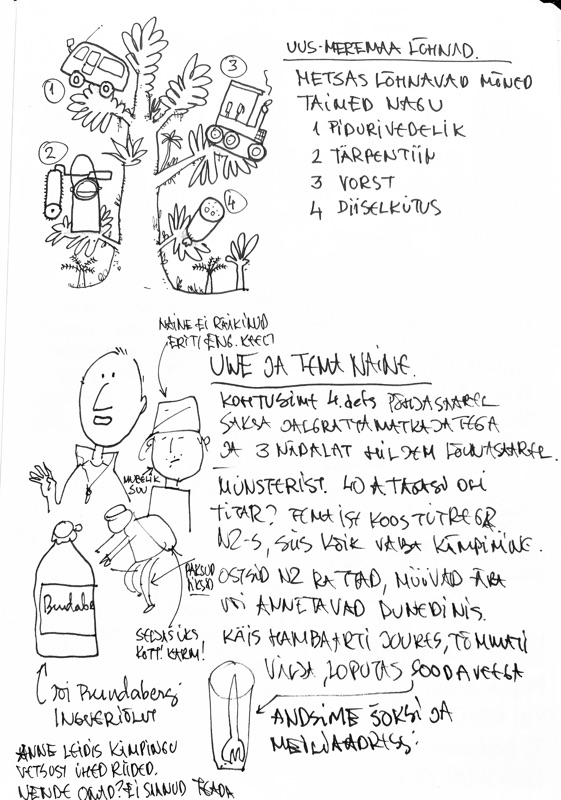 UUS-MEREMAA LÕHNAD.
METSAS LÕHNAVAD MÕNED
TAIMED NAGU
1 PIDURIVEDELIK
2 TÄRPENTIIN
3 VORST
4 DIISELKÜTUS
1
2
3
4
NAINE EI RÄÄKINUD
ERITI ENG. KEELT
UWE JA TEMA NAINE.
KOHTUSIME 4. PÕHJASAAREL
SAKSA JALGRATTAMATKAJATEGA
JA 3 NÄDALAT HILJEM LÕUNASAAREL.
MÜNSTERIST. 40 A TAGASI OLI
TÜTAR? KOOS TÜTREGA
NZ-S, SIIS KÕIK VABA KÄMPIMINE.
OSTSID NZ RATTAD, MÜÜVAD ÄRA
VÕI ANNETAVAD DUNEDINIS.
KÄIS HAMBAARTI JUURES, TÕMMATI
VÄLJA, LOPUTAS SOODAVEEGA
ANDSIME ŠOKSI JA
MEILIAADRESSI
SUU
PAKSUD
SELJAS ÜKS
KOTT. KARM!
Bundabe
JÕI Bundabergi
INGVERIÕLUT
ANNE LEIDIS KÄMPINGU
VETSUST ÜHED RIIDED.
NENDE OMAD? EI SAANUD TEADA